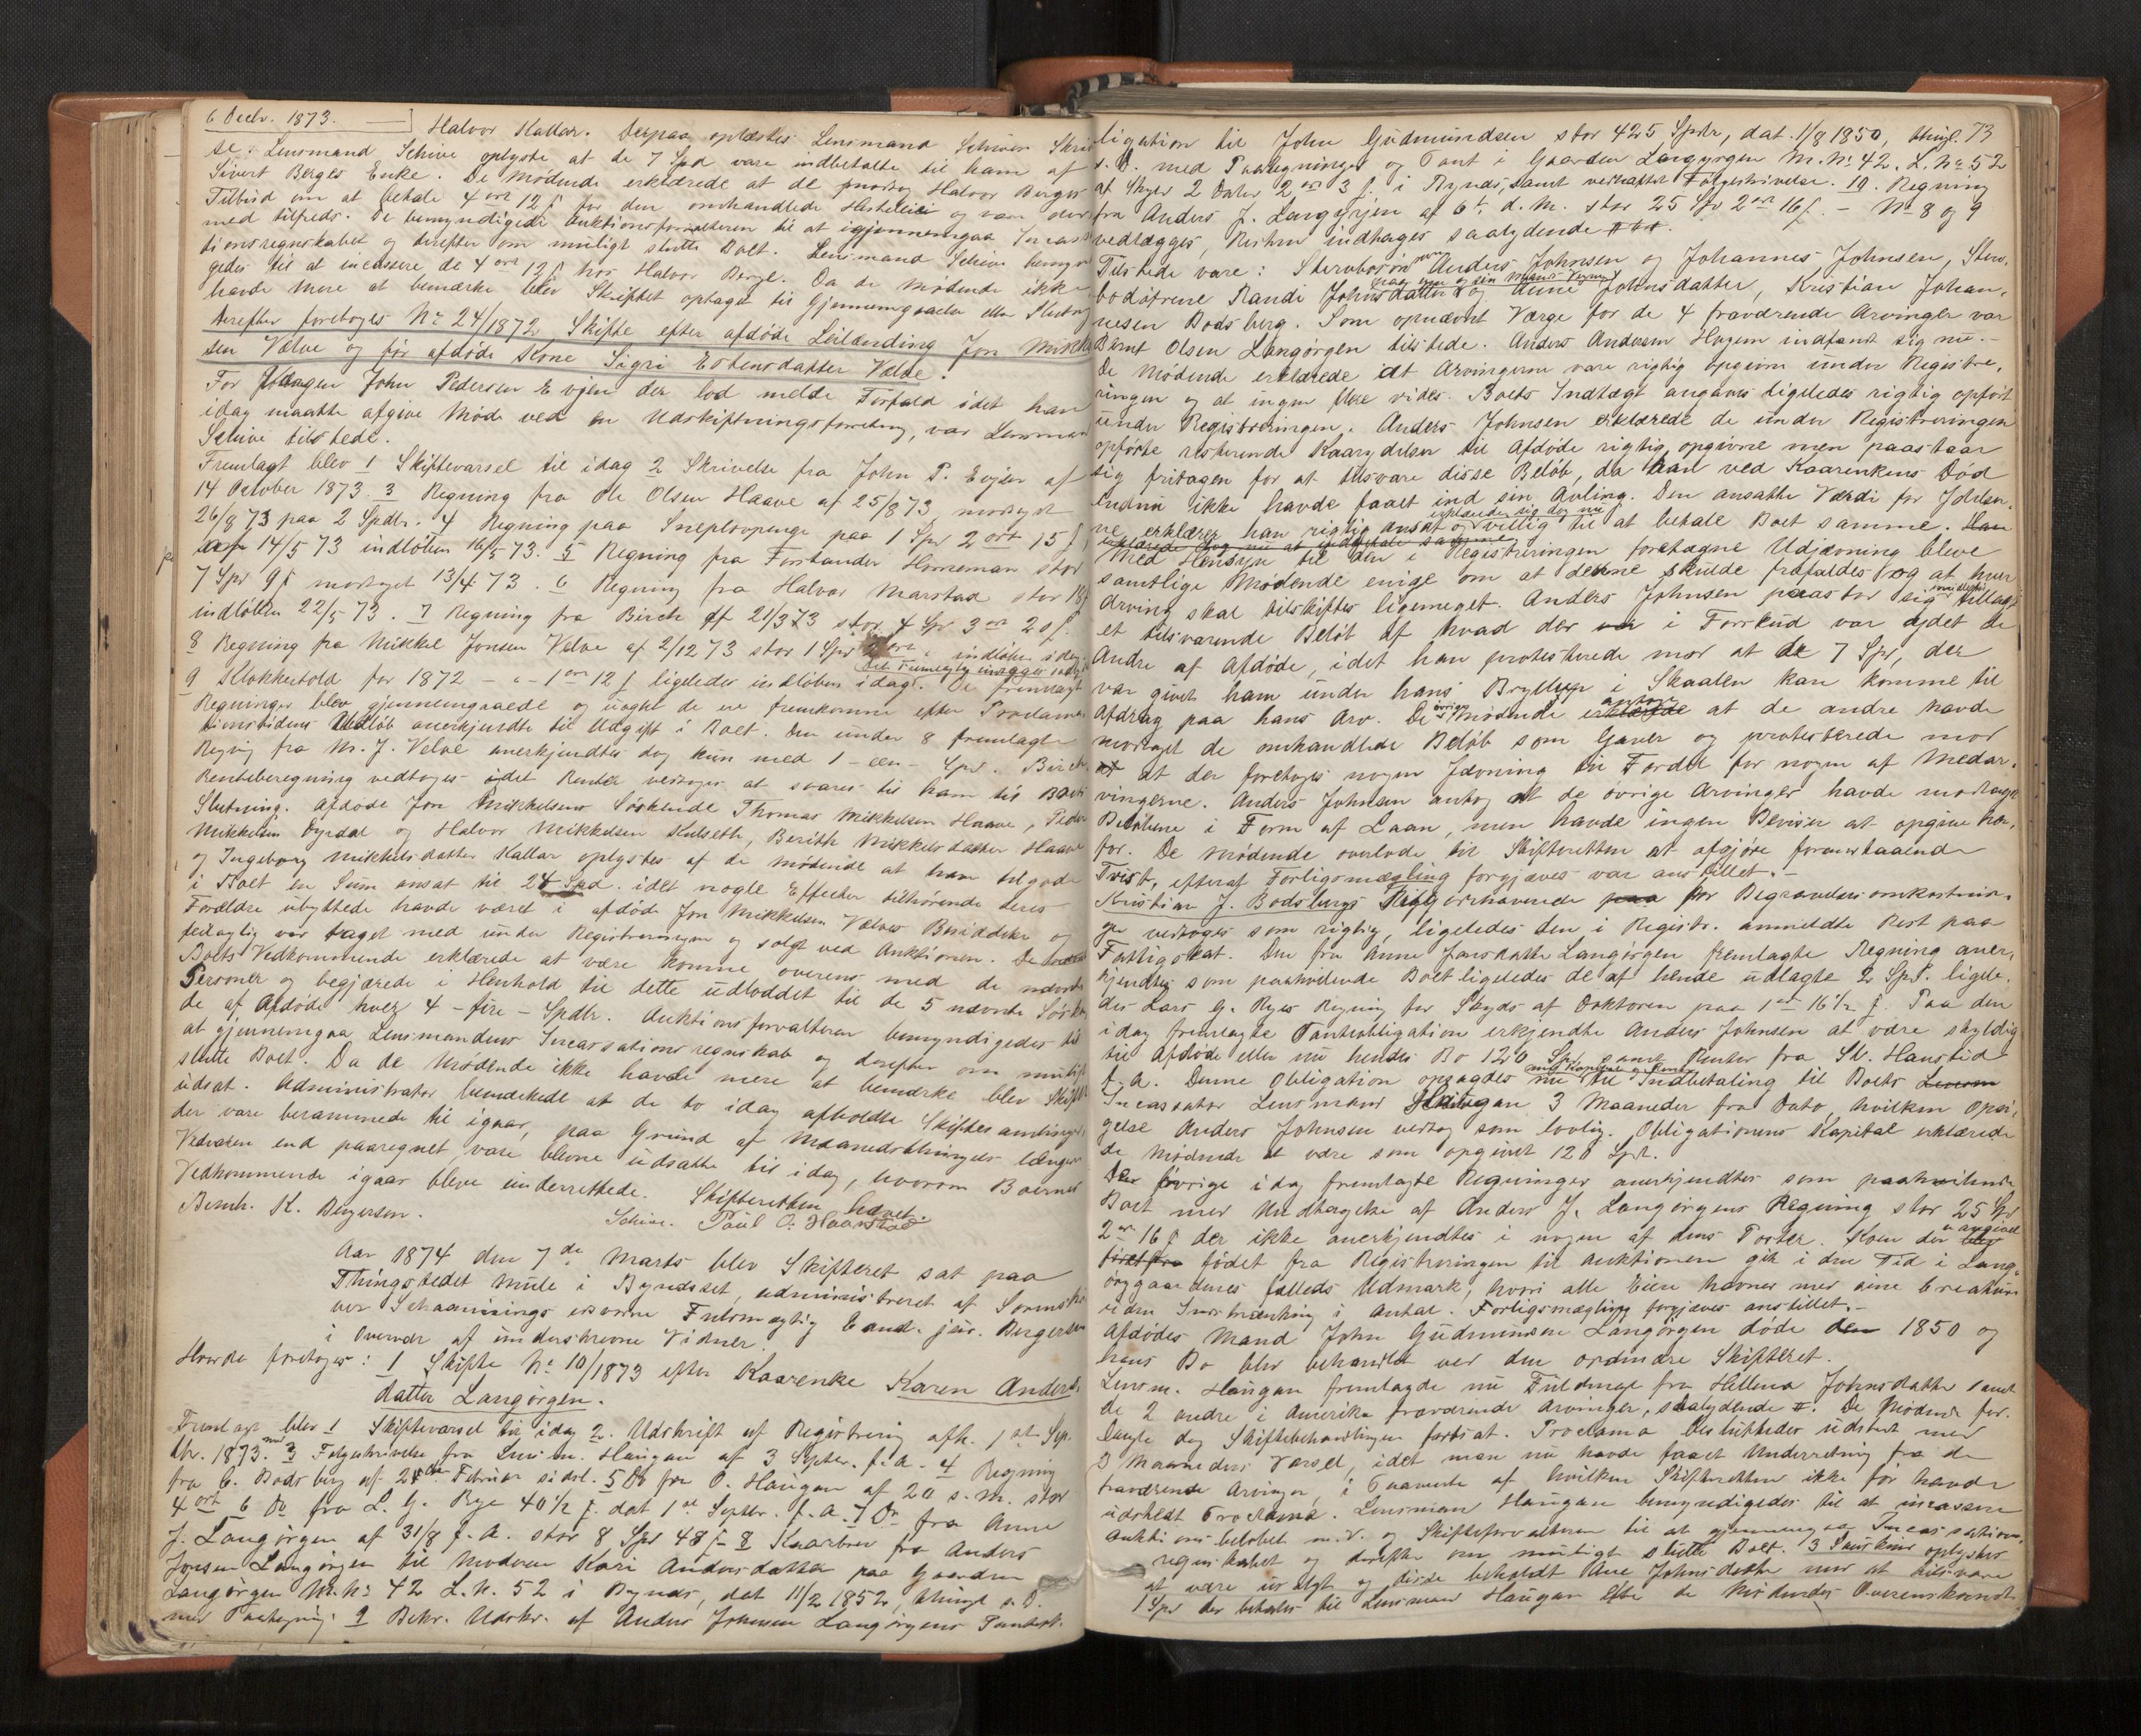 6 Decbr. 1873.
Halvor Kallar. Derpaa oplæstes Lensmand Schives Skri
se. Lensmand Schive oplyste at de 7 Spd vare indbetalte til ham af
Sivert Berges Enke. De Mødende erklærede at de modtog Halvor Berges
Tilbud om at betale 4 ort 12 ß for den omhandlede Hesteleie og vare der
med tilfreds. De bemyndigede Auktionsforvalteren til at igjennemgaa Incassa
tionsregnskabet og derefter om muligt slutte Boet. Lensmand Schive bemyn
gedes til at incassere de 4 ort 12 ß hos Halvor Berge. Da de Mødende ikke
havde mere at bemærke blev Skiftet optaget til Gjennemgaaelse eller Slutning
Derefter foretoges No 24/1872 Skifte efter afdøde Leilænding Jon Mikkel
sen Velve og før afdøde Kone Sigri Estensdatter Velve.
For Værgen John Pedersen Evjen der lod melde Forfald idet han
idag maatte afgive Møde ved en Udskiftningsforretning, var Lensmand
Schive tilstede.
Fremlagt blev 1 Skiftevarsel til idag 2 Skrivelse fra John P. Evjen af
14 October 1873. 3 Regning fra Ole Olsen Haave af 25/8 73 modtaget
26/8 73 paa 2 Spdlr. 4 Regning paa Sneplovpenge paa 1 Spd 2 ort 15 ß
14/5 73 indløben 16/5 73. 5 Regning fra Forstander Horneman stor
7 Spd 9 ß modtaget 13/4 73. 6 Regning fra Halvor Marstad stor
indløben 22/5 73. 7 Regning fra Birch af 21/3 73 stor 4 Spd 3 ort 20 ß.
8 Regning fra Mikkel Jonsen Velve af 2/12 73 stor 1 Spd 2 ort indløben idag
9 Klokkertold for 1872 - " - 1 ort 12 ß ligeledes indløben idag. De fremlagte
Regninger blev gjennemgaaede og uagtet de ere fremkomne efter Proclama
timstidens Udløb anerkjendte til Udgift i Boet. Den under 8 fremlagte
Regng fra M. J. Velve anerkjendtes dog kun med 1 - een - Spd. Birchs
Renteberegning vedtoges idet Renter vedtoges at svares til ham til Boets
Slutning. Afdøde Jon Mikkelsens Søskende Thomas Mikkelsen Haave, Peder
Mikkelsen Dyrdal og Halvor Mikkelsen Kulseth, Berith Mikkelsdatter Haave
og Ingeborg Mikkelsdatter Kallar oplystes af de Mødende at have tilgode
i Boet en Sum ansat til 24 Spd. idet nogle Effecter tilhørende deres
Forældre ubyttede havde været i afdøde Jon Mikkelsen Velves Besiddelse og
feilagtig var taget med under Registreringen og solgt ved Auktionen. De
Boets Vedkommende erklærede at være komne overens med de nævnte
Personer og begjærede i Henhold til dette udloddet til de 5 nævnte Søsken
de af Afdøde hver 4 - fire - Spdlr. Auktionsforvalteren bemyndigedes til
at gjennemgaa Lensmandens Incassationsregnskab og derefter om muligt
slutte Boet. Da de Mødende ikke havde mere at bemærke blev Skiftet
udsat. Administrator bemærkede at de to idag afholdte Skiftesamlinger,
der vare berammede til igaar, paa Grund af Maanedsthingets længere
Vedvaren end paaregnet, vare blevne udsatte til idag, hvorom Boernes
Vedkommende igaar bleve underrettede. Skifteretten hævet.
Bernh. K. Bergersen. Schive. Paul O. Haarstad
Aar 1874 den 7de Marts blev Skifteret sat paa
Thingstedet Mule i Byndset, administreret af Sorenskri
ver Schaannings edsvorne Fuldmægtig Cand. jur. Bergersen
i Overvær af underskrevne Vidner.
Hvorda foretoges: 1 Skifte No 10/1873 efter Kaarenke Karen Anders
datter Langørgen.
Fremlagt blev 1 Skiftevarsel til idag 2. Udskrift af Registrering afh. 1ste Sep
tbr. 1873. med 3 Følgeskrivelse fra Lensm. Haugan af 3 Septbr. f. A. 4 Regning
fra C. Bodsberg af 28de Februar sidstl. 5 Do fra O. Haugan af 20 s. M. stor
4 ort 6 Do fra L. G. Rye 40 1/2 ß. dat 1ste Septbr. f. A. 7 Do fra Anne
J. Langørgen af 31/8 f. A. stor 8 Spd 48 ß - 8 Kaarbrev fra Anders
Jonsen Langørgen til Moderen Kari Andersdatter paa Gaarden
Langørgen M. No 42 L. N. 52 i Bynds, dat 11/2 1852, thingl. s. D.
med Paategning. 9 Bekr. Udskr. af Anders Johnsen Langørgens Pantob-
73
ligation til John Gudmundsen stor 425 Spdlr, dat. 1/8 1850, thingl.
s. D. med Paategninger og Pant i Gaarden Langørgen M. No 42. L. No 52
af Skyld 2 Daler 2 ort 3 ß. i Bynds, samt vedhæftet Følgeskrivelse. 10. Regning
fra Anders J. Langørgen af 6te d. M. stor 25 Spd 2 ort 16 ß. - No 8 og 9
vedlægges, Resten indtages saalydende
Tilstede vare: Stervboets Anders Johnsen og Johannes Johnsen, Sterv-
bodøtrene Randi Johnsdatter og Anne Johnsdatter, Kristian Johan-
nesen Bodsberg. Som opnævnt Værge for de 4 fraværende Arvinger var
Bernt Olsen Langørgen tilstede. Anders Andersen Hagen indfandt sig nu. -
De Mødende erklærede at Arvingerne vare rigtig opgivne under Registre-
ringen og at ingen flere vides. Boets Indtægt angaves ligeledes rigtig opført
under Registreringen. Anders Johnsen erklærede de under Registreringen
opførte resterende Kaarydelser til Afdøde rigtig opgivne men paastaar
sig fritagen for at tilsvare disse Beløb, da han ved Kaarenkens Død
endnu ikke havde faaet ind sin Avling. Den ansatte Værdi for Ydelser-
ne erklærer han rigtig ansat og erklærede sig dog nu villig til at betale Boet samme. Han
erklærede dog nu at indbetale samme.
Med Hensyn til den i Registreringen foretagne Udjævning bleve
samtlige Mødende enige om at denne skulde frafaldes og at hver
Arving skal tilskiftes ligemeget. Anders Johnsen paastod sig imidlertid tillagt
et tilsvarende Beløb af hvad der i Forskud var ydet de
Andre af Afdøde, idet han protesterede mod at de 7 Spd, der
var givet ham under hans Bryllup i Skaalen kan komme til
Afdrag paa hans Arv. De øvrige Mødende erklærede at de andre havde
modtaget de omhandlede Beløb som Gaver og protesterede mod
at der foretoges nogen Jævning til Fordel for nogen af Medar-
vingerne. Anders Johnsen antog at de øvrige Arvinger havde modtaget
Beløbene i Form af Laan, men havde ingen Beviser at opgive her-
for. De Mødende overlode til Skifteretten at afgjøre foranstaaende
Tvist, efterat Forligsmægling forgjæves var anstillet. -
Kristian J. Bodsbergs Tilgodehavende paa for Begravelsesomkostnin-
ger vedtoges som rigtig, ligeledes den i Registr. anmeldte Rest paa
Fattigskat. Den fra Anne Jonsdatter Langørgen fremlagte Regning aner-
kjendtes som paahvilende Boet ligeledes de af hende udlagte 2 Spd. ligele-
des Lars G. Ryes Regning for Skyds af Doktoren paa 1 ort 16 1/2 ß. Paa den
idag fremlagte Pantobligation erkjendte Anders Johnsen at være skyldig
til Afdøde eller nu hendes Bo 120 Spd, samt Renter fra St. Hanstid
f. A. Denne Obligation opsagdes nu med Kapital og Renter til Indbetaling til Boets
Incassator Lensmand Haugan 3 Maaneder fra Dato, hvilken Opsi-
gelse Anders Johnsen vedtog som lovlig. Obligationens Kapital erklærede
de Mødende at være som opgivet 120 Spd.
De øvrige idag fremlagte Regninger anerkjendtes som paahvilende
Boet med Undtagelse af Anders J. Langørgens Regning stor 25 Spd
2 ort 16 ß der ikke anerkjendtes i nogen af dens Poster. Koen der angivet
fødet fra Registreringen til Auktionen gik i den Tid i Lang-
ørggaardenes fælleds Udmark, hvori alle Eiere havner med sine Creature
uden Indskrænkning i Antal. Forligsmægling forgjæves anstillet. -
Afdødes Mand John Gudmundsen Langørgen døde den 1850 og
hans Bo blev behandlet ved den ordinære Skifteret.
Lensm. Haugan fremlagde nu Fuldmagt fra Hellena Johnsdatter samt
de 2 andre i Amerika fraværende Arvinger, saalydende. De Mødende for-
langte dog Skiftebehandlingen fortsat. Proclama besluttedes udstedt med
3 Maaneders Varsel, idet man nu havde faaet Underretning fra de
fraværende Arvinger, i Fravente af hvilken Skifteretten ikke før havde
udstedt Proclama. Lensmand Haugan bemyndigedes til at incassere
Auktionsbeløbet m. V. og Skifteforvalteren til at gjennemgaa Incassations-
regnskabet og derefter om muligt slutte Boet. 3 oplystes
at være usolgt og disse beholdt Ane Johnsdatter mod at tilsvare
1 Spd der betales til Lensmand Haugan efter de Mødendes Overenskomst